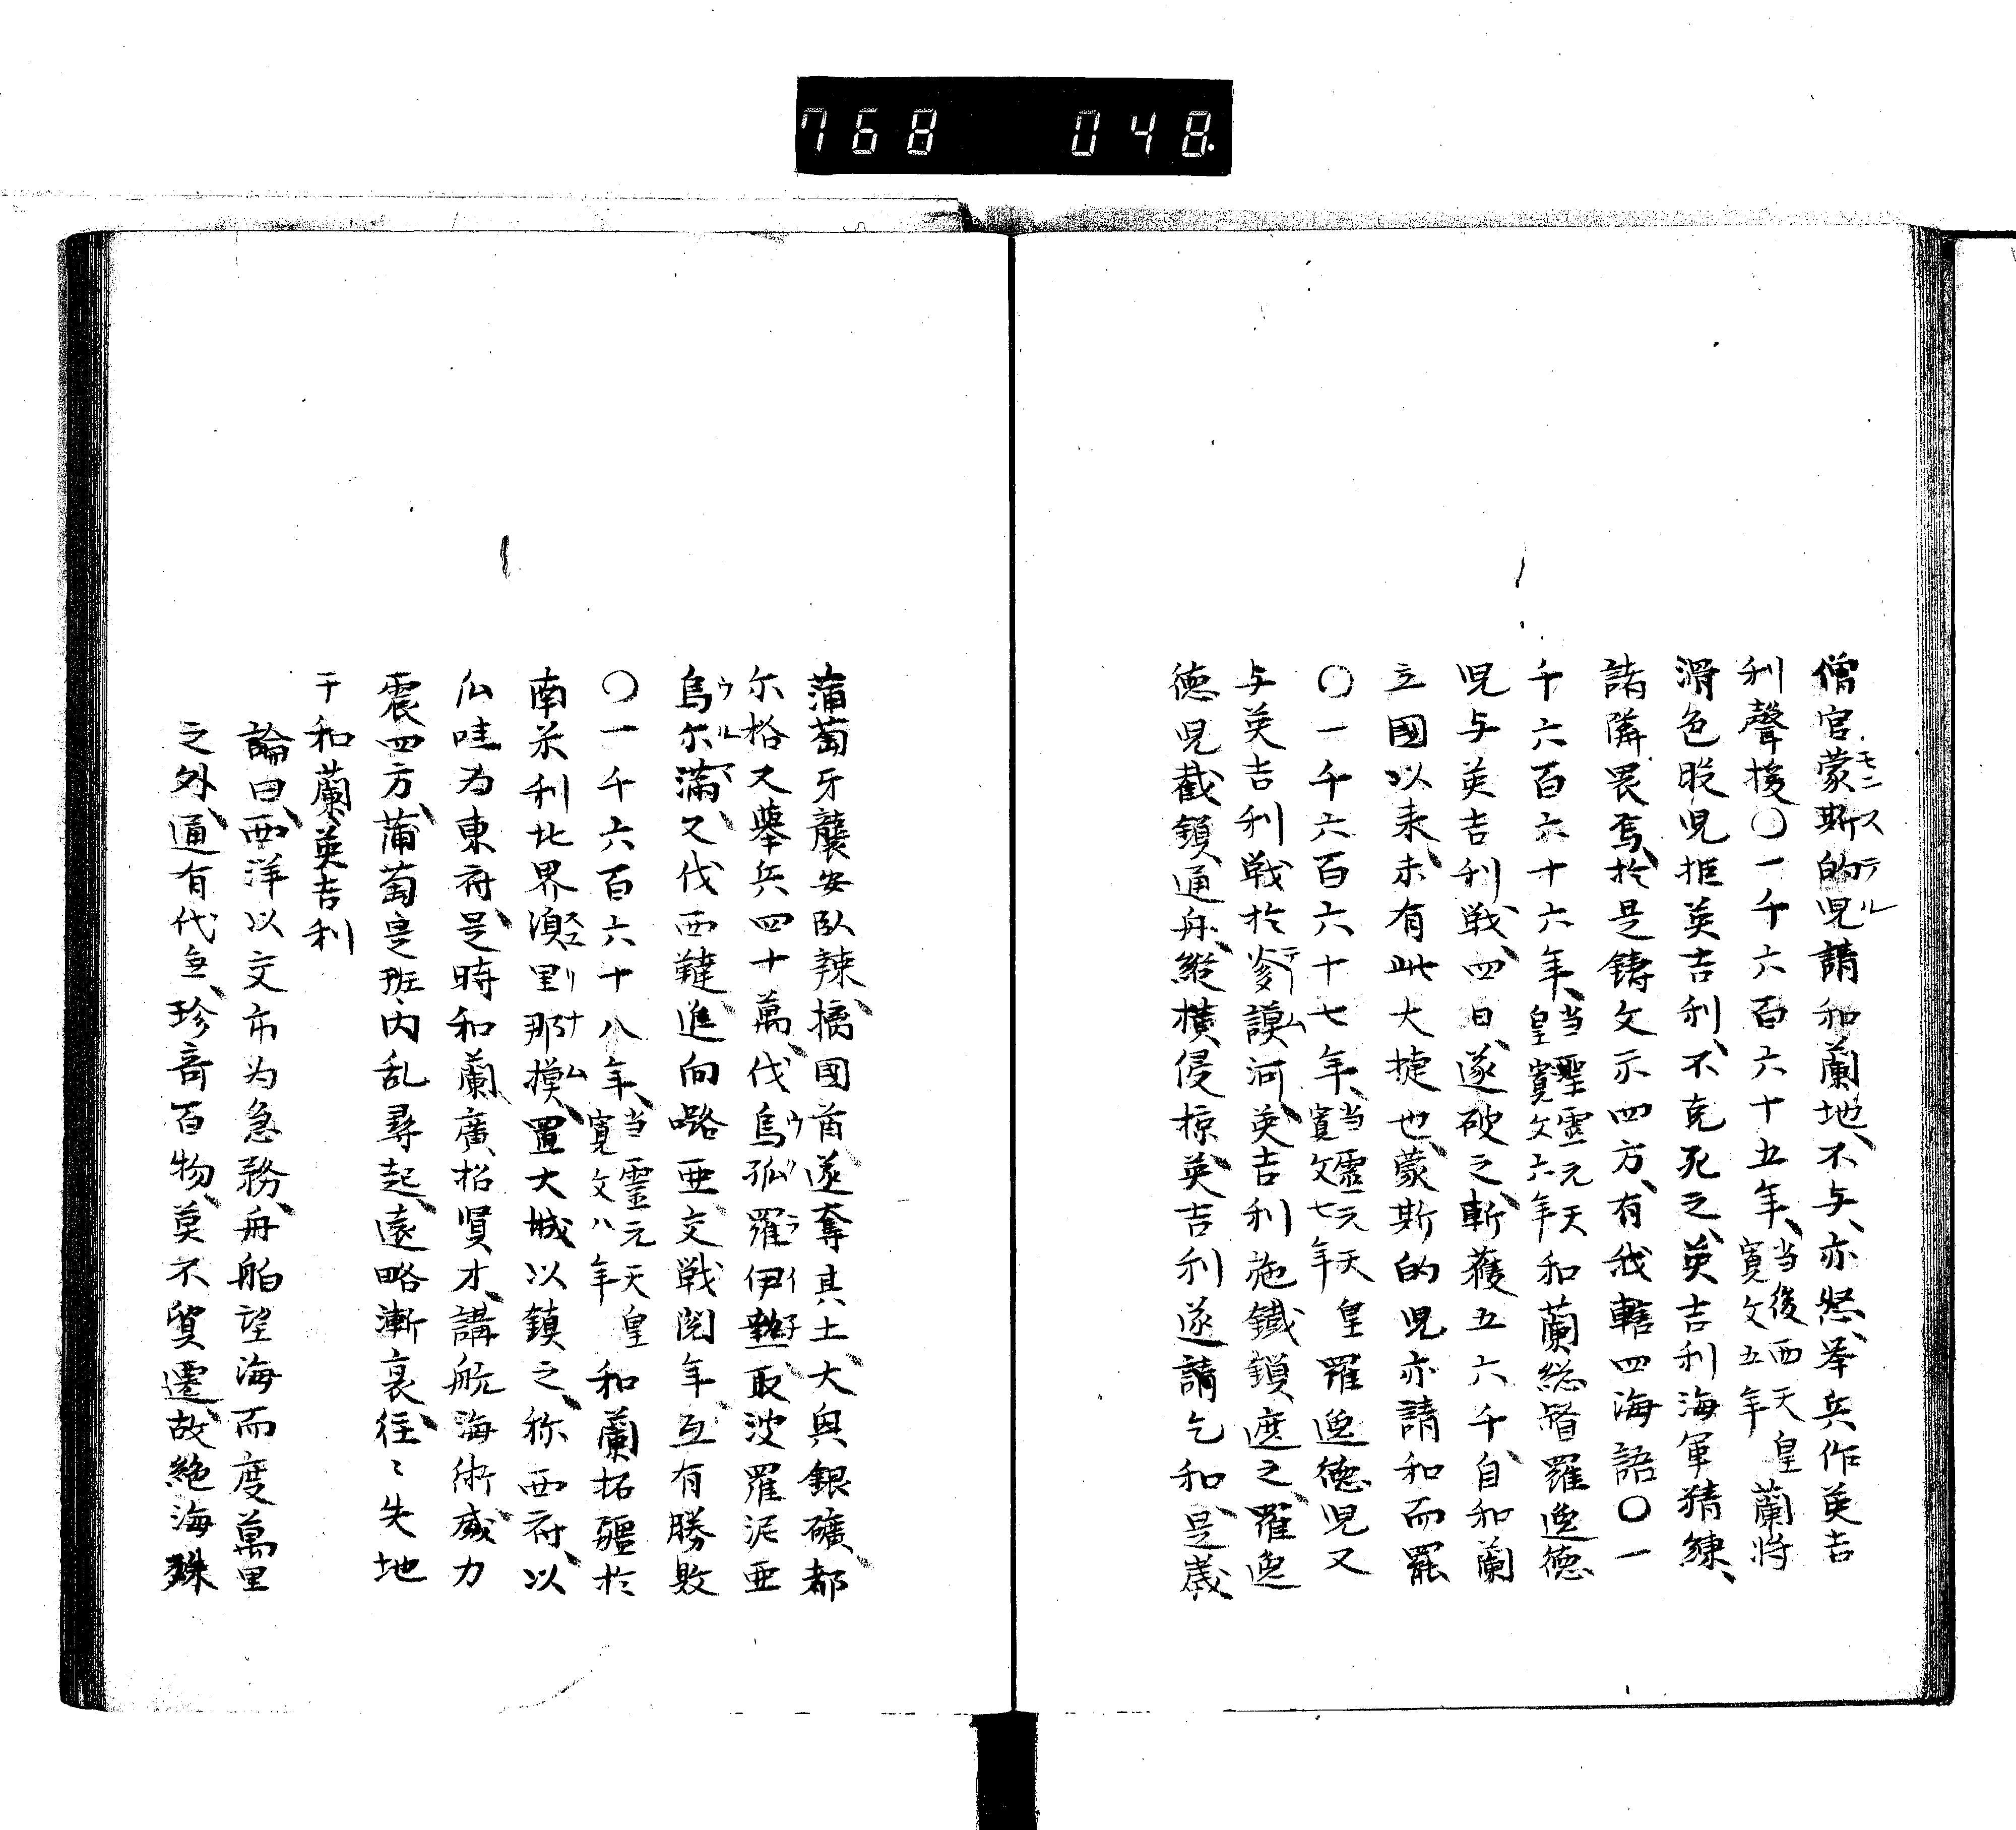 768 048.
僧官蒙斯的児請和蘭地、不与、亦怒、挙兵作英吉
モンステル
利聲援〇一千六百六十五年、当後西天皇寛文五年蘭将
滑色股児拒英吉利、不克死之、英吉利海軍猜練、
諸隣畏焉、於是鋳文示四方、有我轄四海語〇一
千六百六十六年、当聖霊元天皇寛文六年和蘭総督羅逸徳
児与英吉利戦、四日、遂破之、斬獲五六千、自和蘭
立國以来、未有此大捷也、蒙斯的児亦請和而罷
〇一千六百六十七年、当霊元天皇寛文七年羅逸徳児又
与英吉利戦於爹謨河、英吉利施鐡鎖遮之、羅逸
テームス
徳児截鎖通舟、縦横侵掠、英吉利遂請乞和、是歳、
蒲萄牙襲安臥辣、擒國酋、遂奪其土、大興銀礦、都
尓格又挙兵四十萬、伐烏孤羅伊拏、取波羅泥亜
ウクライ子
烏尓満、又伐西韃、進向啰亜、交戦閲年、互有勝敗
ウルマ
〇一千六百六十八年、当霊元天皇寛文八年和蘭拓疆於
南米利比界、澳里那摸、置大城以鎮之、称西府、以
ヱリナム
仏哇为東府、是時和蘭廣招賢才、講航海術、威力
震四方、蒲萄是班内乱尋起、遠略漸衰、往〻失地
于和蘭英吉利
論曰、西洋以交市为急務、舟舶望海而度萬里
之外、通有代無、珍奇百物、莫不貿遷、故絶海殊